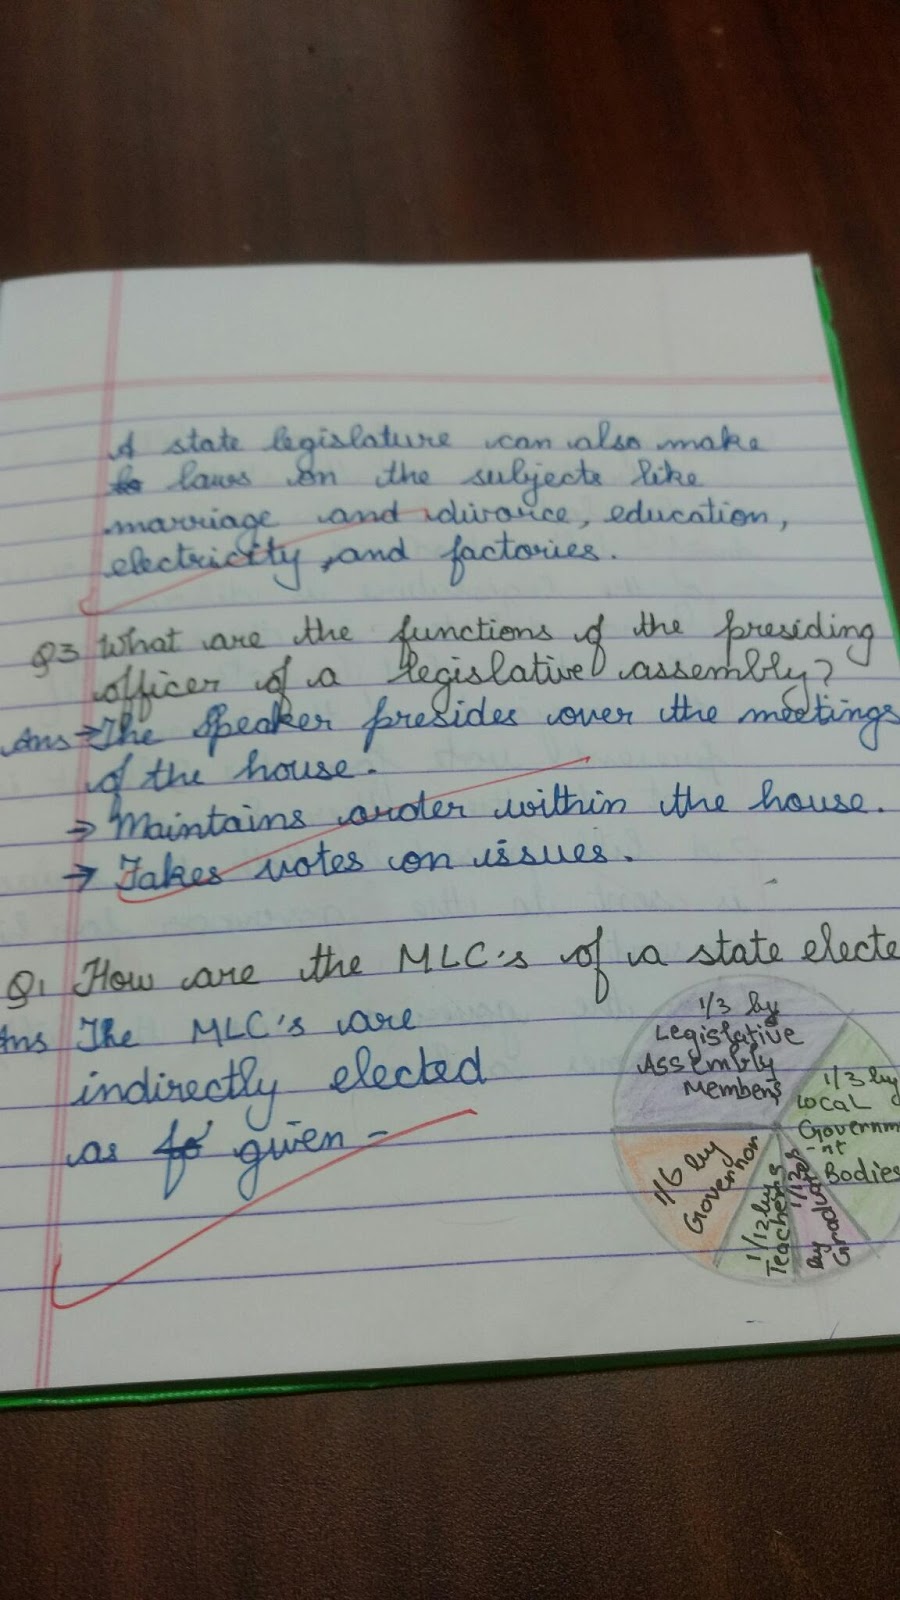 A state legislature can also make
laws on the subjects like
marriage and divorce, education,
electricity and factories.
Q3 What are the functions of the presiding
officer of a legislative assembly?
Ans → The Speaker presides over the meetings
of the house.
→ Maintains order within the house.
→ Takes votes on issues.
Q1 How are the MLC's of a state electe
Ans The MLC's are
indirectly elected
as given -
1/3 by
Legislative
Assembly
Members
1/3 by
Local
Governm
-nt
Bodies
1/6 by
Governor
1/12 by
Teachers
1/12
by
Graduates